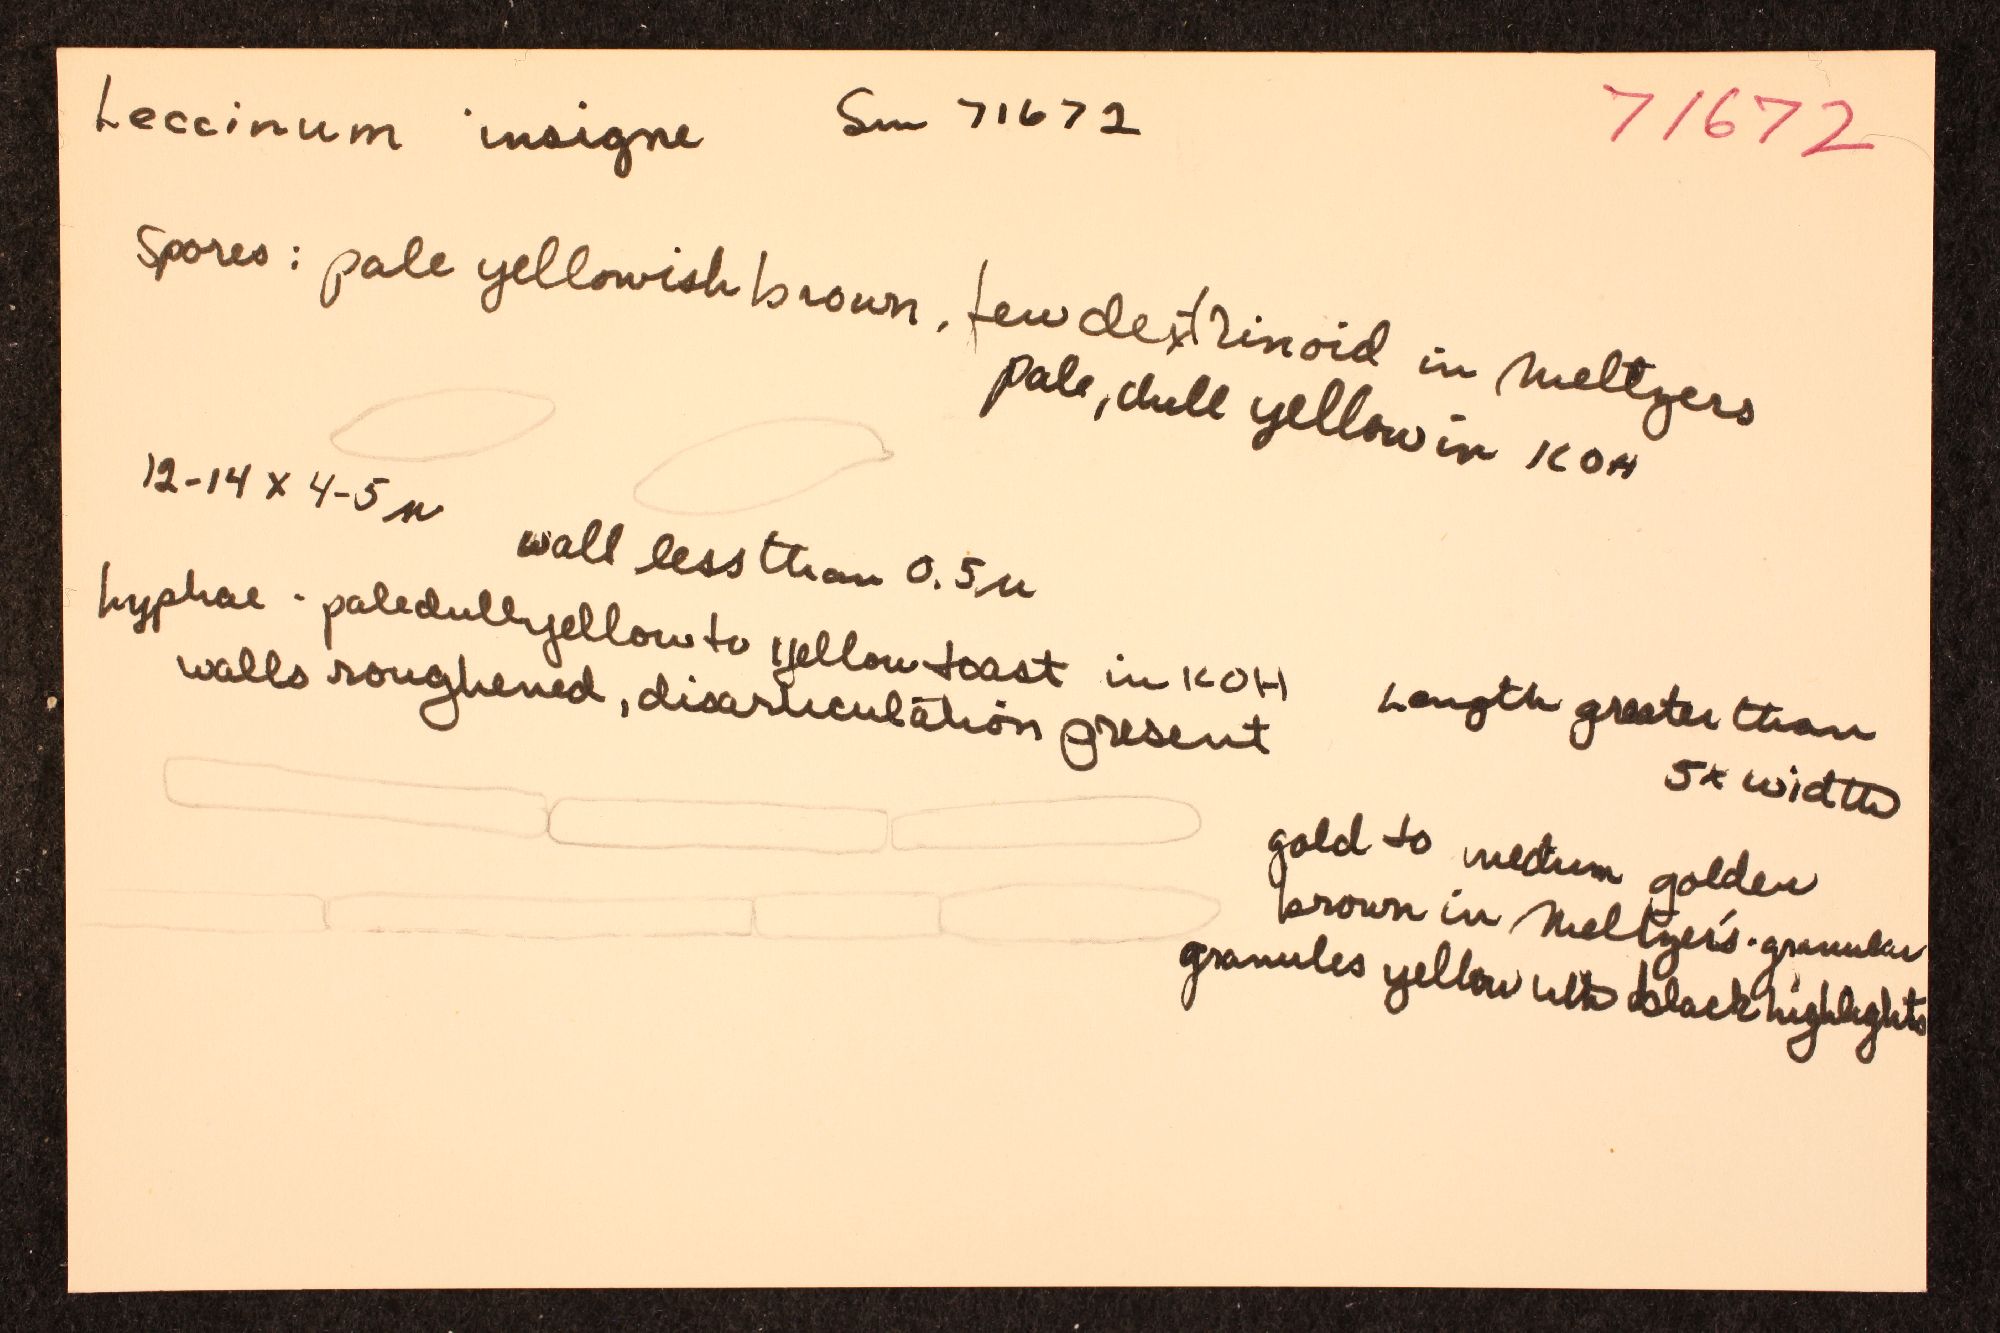 Leccinum insigne Sm 71672 71672
Spores: pale yellowish brown, few dextrinoid in Meltzers
pale, dull yellow in KOH
12-14 x 4-5 µ
wall less than 0.5µ
hyphae - pale dull yellow to yellow toast in KOH
walls roughened, disarticulation present
Length greater than
5x width
gold to medium golden
brown in Meltzer's - granular
granules yellow with black highlights